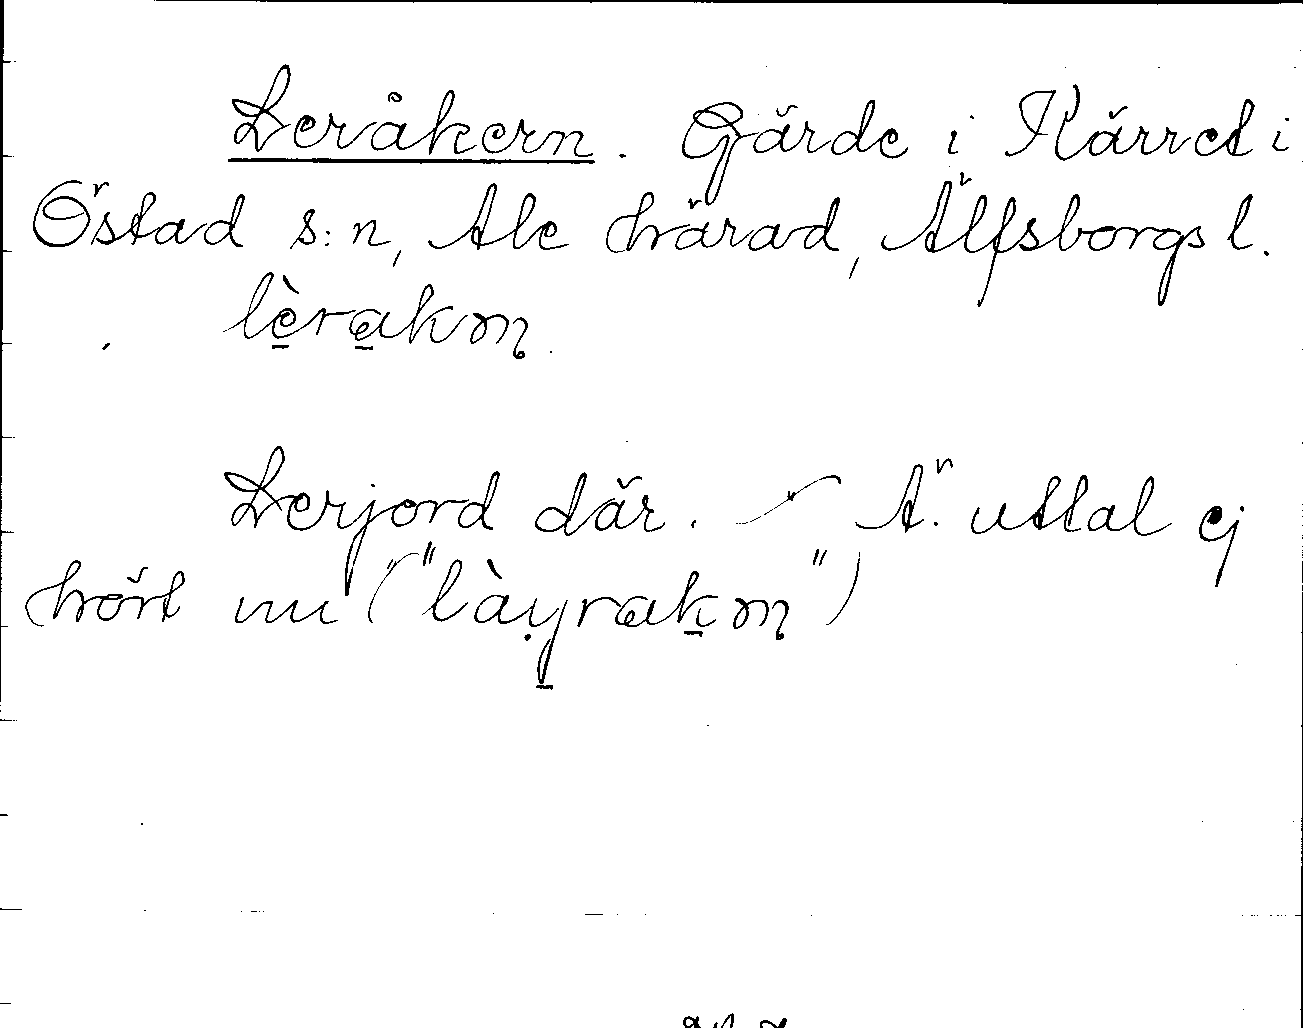 Leråkern. Gärde i Kärret i
Östad s:n, Ale härad, Älfsborgs l.
lèrakm
Lerjord där. Ä. uttal ej
hört nu ("làyrakm")